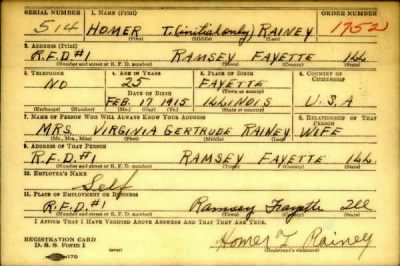 SERIAL NUMBER 1. NAME (Print) ORDER NUMBER
514 HOMER T. (initial only) RAINEY 1752
(First) (Middle) (Last)
2. ADDRESS (Print)
R.F.D.#1 RAMSEY FAYETTE ILL
(Number and street or R. F. D. number) (Town) (County) (State)
3. TELEPHONE 4. AGE IN YEARS 5. PLACE OF BIRTH 6. COUNTRY OF CITIZENSHIP
NO 25 FAYETTE
DATE OF BIRTH (Town or county)
FEB. 17 1915 ILLINOIS U.S.A
(Exchange) (Number) (Mo.) (Day) (Yr.) (State or country)
7. NAME OF PERSON WHO WILL ALWAYS KNOW YOUR ADDRESS 8. RELATIONSHIP OF THAT PERSON
MRS. VIRGINIA GERTRUDE RAINEY WIFE
(Mr., Mrs., Miss) (First) (Middle) (Last)
9. ADDRESS OF THAT PERSON
R.F.D.#1 RAMSEY FAYETTE ILL
(Number and street or R. F. D. number) (Town) (County) (State)
10. EMPLOYER'S NAME
Self
11. PLACE OF EMPLOYMENT OR BUSINESS
R.F.D.#1 Ramsey Fayette Ill
(Number and street or R. F. D. number) (Town) (County) (State)
I AFFIRM THAT I HAVE VERIFIED ABOVE ANSWERS AND THAT THEY ARE TRUE.
REGISTRATION CARD
D. S. S. Form 1
Homer T Rainey
(Registrant's signature)